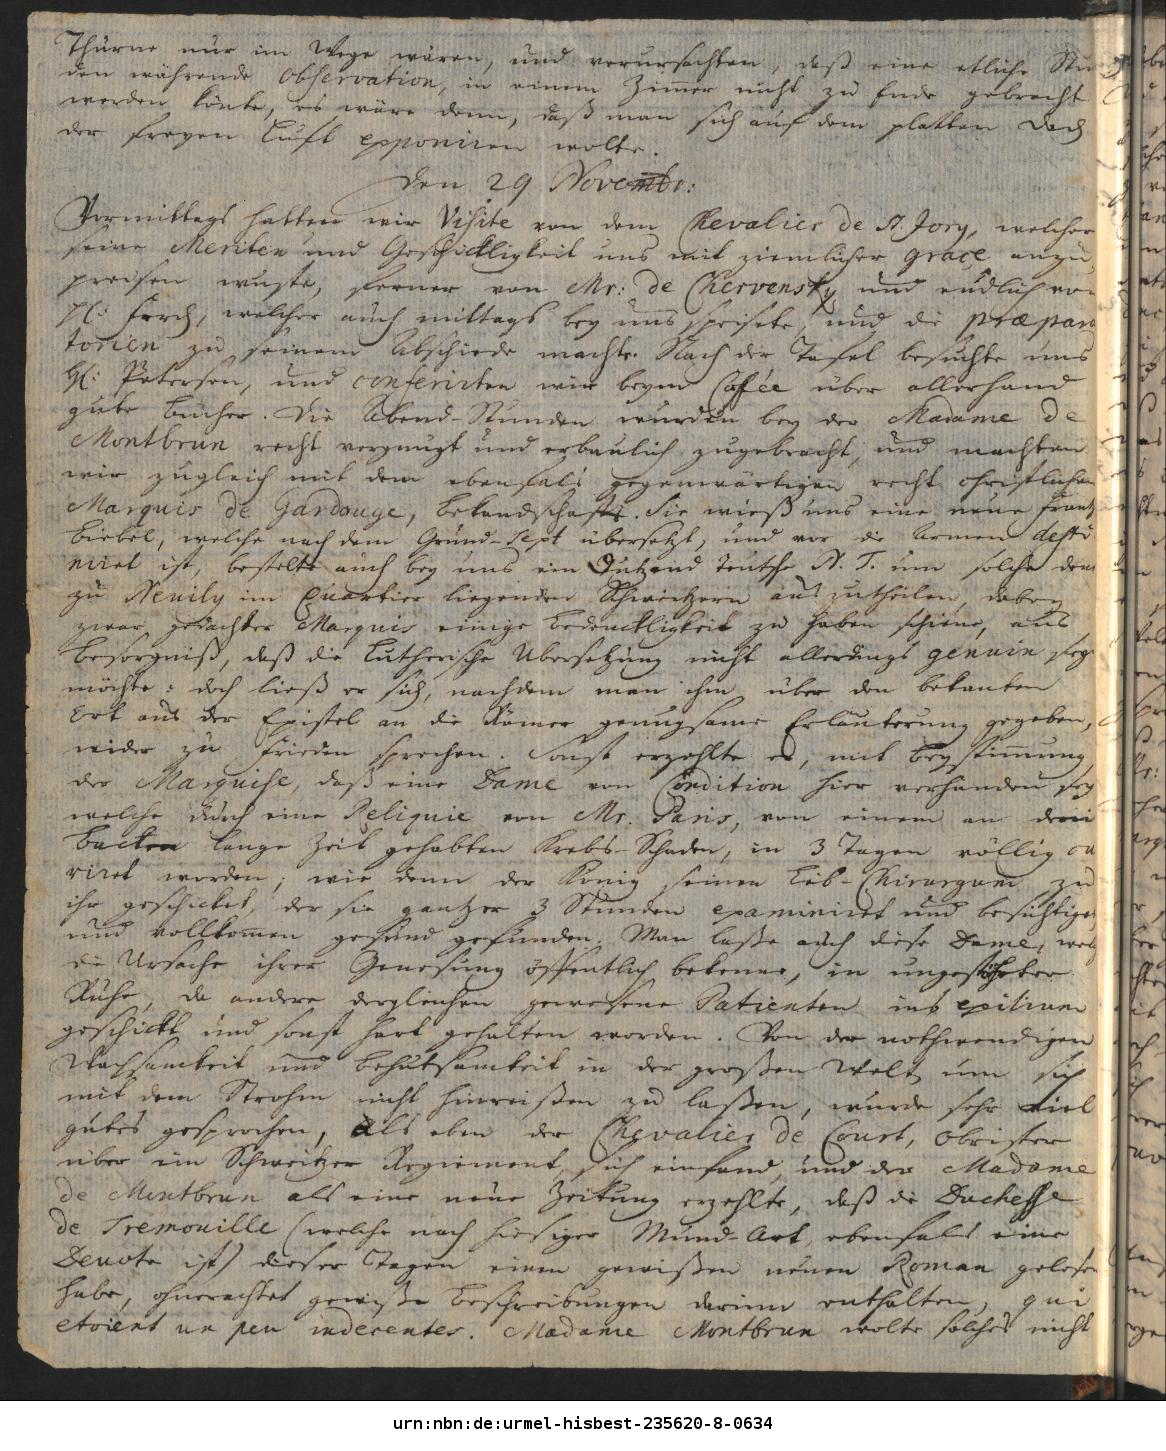 Thürne nur im Wege wären, und verursachten, daß eine etliche Stu
den währende Observation, in einem Zimmer nicht zu Ende gebracht
werden könte, es wäre denn, daß man sich auf dem platten Dach
der freyen Luft exponiren wolte.
Den 29 Novembr:
Vormittags hatten wir Visite von dem Chevalier de St. Jory, welcher
seine Meriten und Geschickligkeit uns mit ziemlicher grace anzu
preisen wuste, ferner von Mr: de Chervensky und endlich von
H: Frech, welcher auch mittags bey uns speisete, und die præpara
torien zu seinem Abschiede machte. Nach der Tafel besuchte uns
H: Petersen, und conferirten wir beym Cafée über allerhand
gute Bücher. Die Abend-Stunden wurden bey der Madame de
Montbrun recht vergnügt und erbaulich zugebracht, und machten
wir zugleich mit dem ebenfals gegenwärtigen recht christlichen
Marquis de Gardouge, Bekandschaft. Sie wieß uns eine neue Frantz
Biebel, welche nach dem Grund-Text übersetzt, und vor die Armen desti
niret ist, bestelte auch bey uns ein Dutzend Teutsche N. T. um solche den
zu Neuily im Quartier liegenden Schweitzern auszutheilen, dabey
zwar gedachter Marquis einige Bedenckligkeit zu haben schiene, aus
Besorgniß, daß die Lutherische Ubersetzung nicht allerdings genuin sey
möchte: doch ließ er sich, nachdem man ihm über den bekanten
Ort aus der Epistel an die Römer genugsame Erläuterung gegeben,
wider zu frieden sprechen. Sonst erzehlte er, mit Beystimmung
der Marquise, daß eine Dame von Condition hier verhanden sey
welche durch eine Reliquie von Mr. Paris, von einem an dem
Backen lange Zeit gehabten Krebs-Schaden, in 3 Tagen völlig cu
riret worden; wie denn der König seinen Leib-Chirurgum zu
ihr geschicket, der sie gantzer 3 Stunden examiniret und besichtiget
und vollkommen gesund gefunden. Man laße auch diese Dame, welche
die Ursache ihrer Genesung öffentlich bekenne, in ungestöhrter
Ruhe, da andere dergleichen gewesene Patienten ins exilium
geschickt und sonst hart gehalten worden. Von der nothwendigen
Wachsamkeit und Behutsamkeit in der großen Welt, um sich
mit dem Strohm nicht hinreißen zu laßen, wurde sehr viel
gutes gesprochen, als eben der Chevalier de Court, Obrister
über ein Schweitzer Regiement, sich einfand, und der Madame
de Montbrun als eine neue Zeitung erzehlte, daß die Duchesse
de Tremouille (welche nach hiesiger Mund-Art ebenfals eine
Devote ist) dieser Tagen einen gewißen neuen Roman gelesen
habe, ohnerachtet gewiße Beschreibungen darinn enthalten, qui
etoient un peu indecentes. Madame Montbrun wolte solches nicht
urn:nbn:de:urmel-hisbest-235620-8-0634